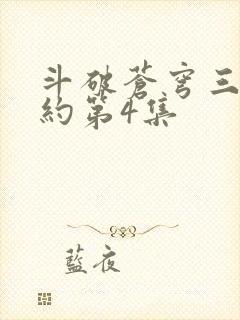 斗破蒼穹三
約第4集
藍夜